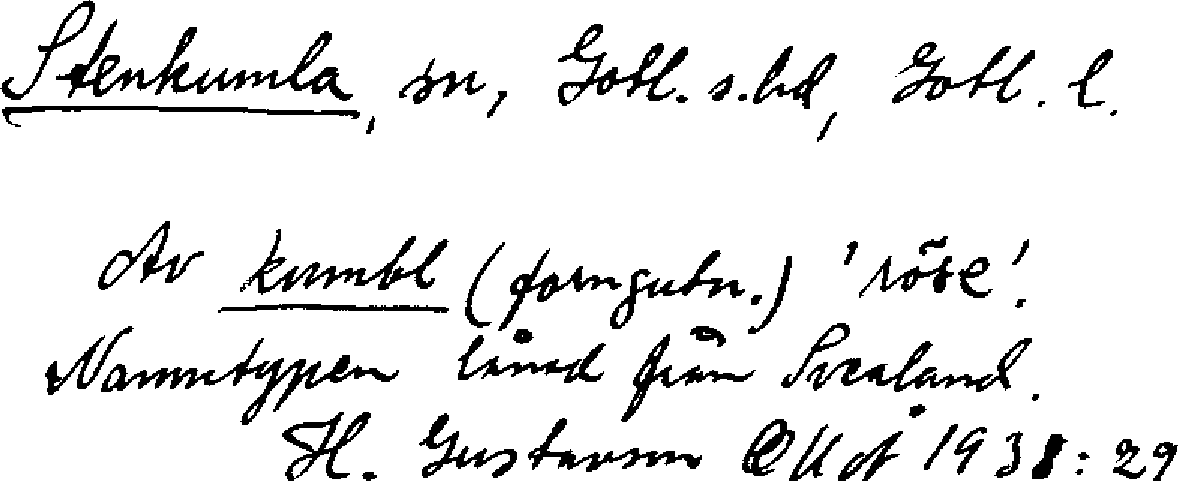 Stenkumla, sn, Gotl. s. hd, Gotl. l.
Av kumbl (forngutn.) 'röse'.
Namntypen lånad från Svealand.
H. Gustavson 1938:29